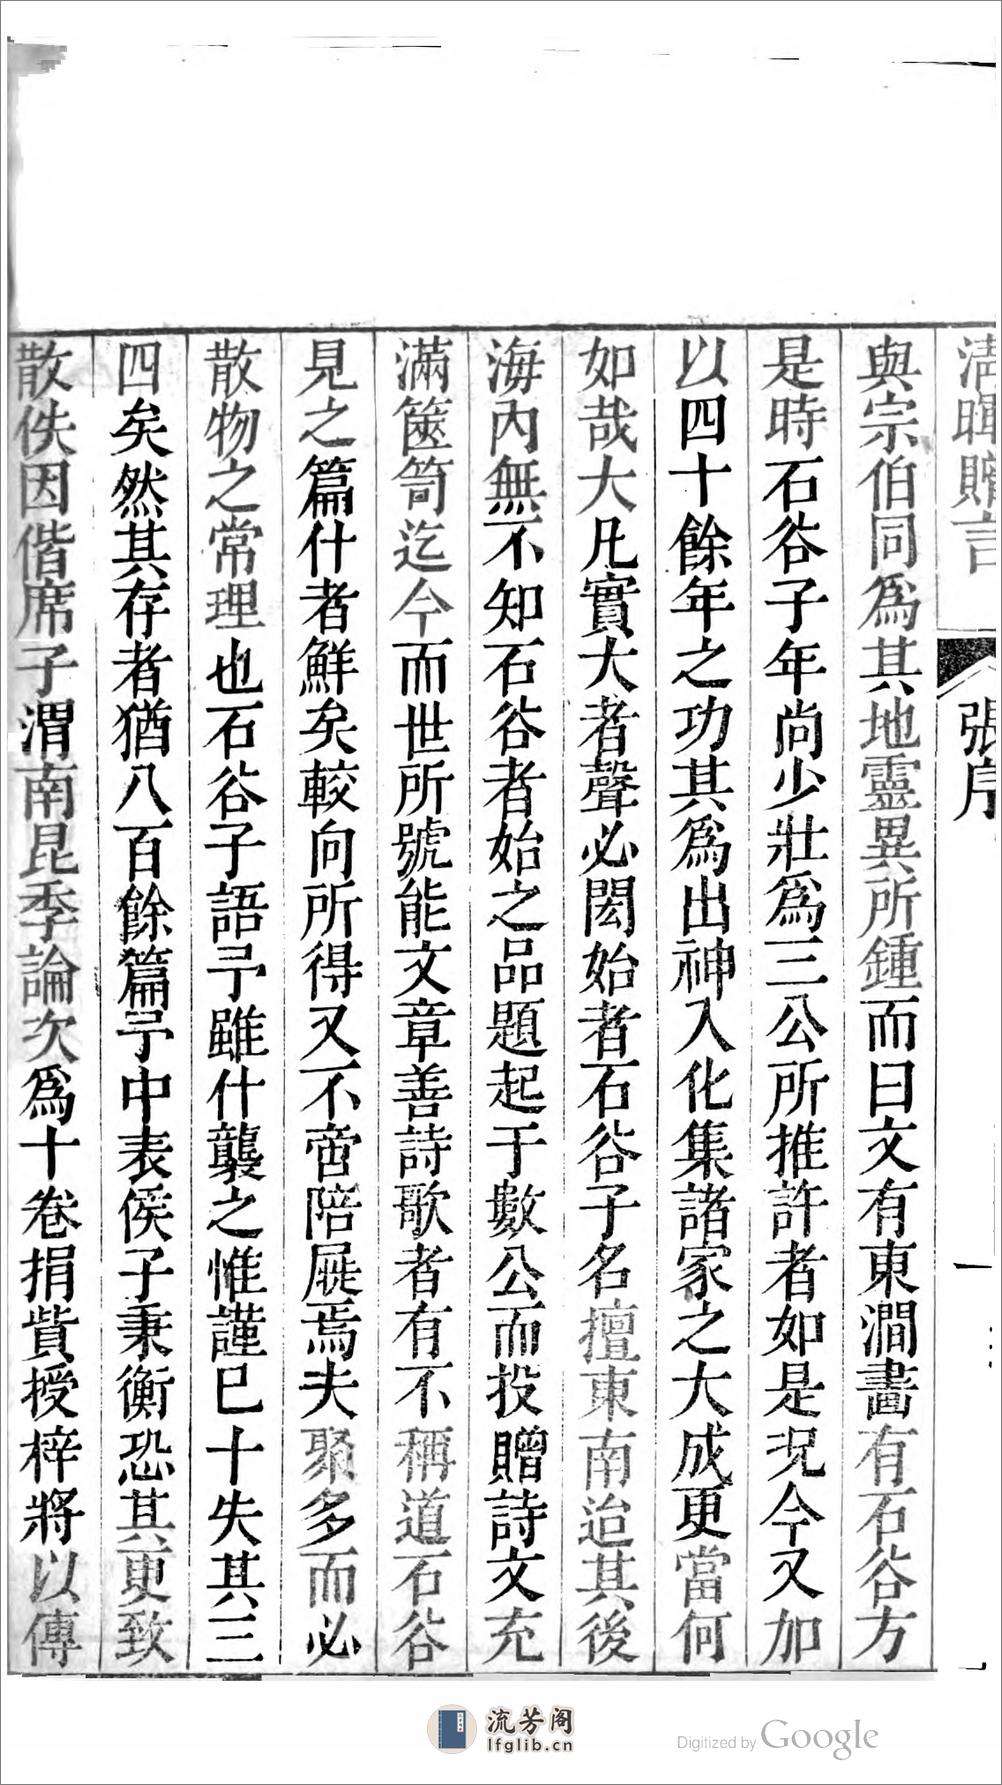 清暉贈言
張序
一
與宗伯同爲其地靈異所鍾而曰文有東澗畵有石谷方
是時石谷子年尚少壯爲三公所推許者如是况今又加
以四十餘年之功其爲出神入化集諸家之大成更當何
如哉大凡實大者聲必閎始者石谷子名擅東南迨其後
海內無不知石谷者始之品題起于數公而投贈詩文充
滿篋笥迄今而世所號能文章善詩歌者有不稱道石谷
見之篇什者鮮矣較向所得又不啻陪屣焉夫聚多而必
散物之常理也石谷子語予雖什襲之惟謹已十失其三
四矣然其存者猶八百餘篇予中表侯子秉衡恐其更致
散佚因偕席子渭南昆季論次爲十卷捐貲授梓將以傳
流芳阁
lfglib.cn
Digitized by Google